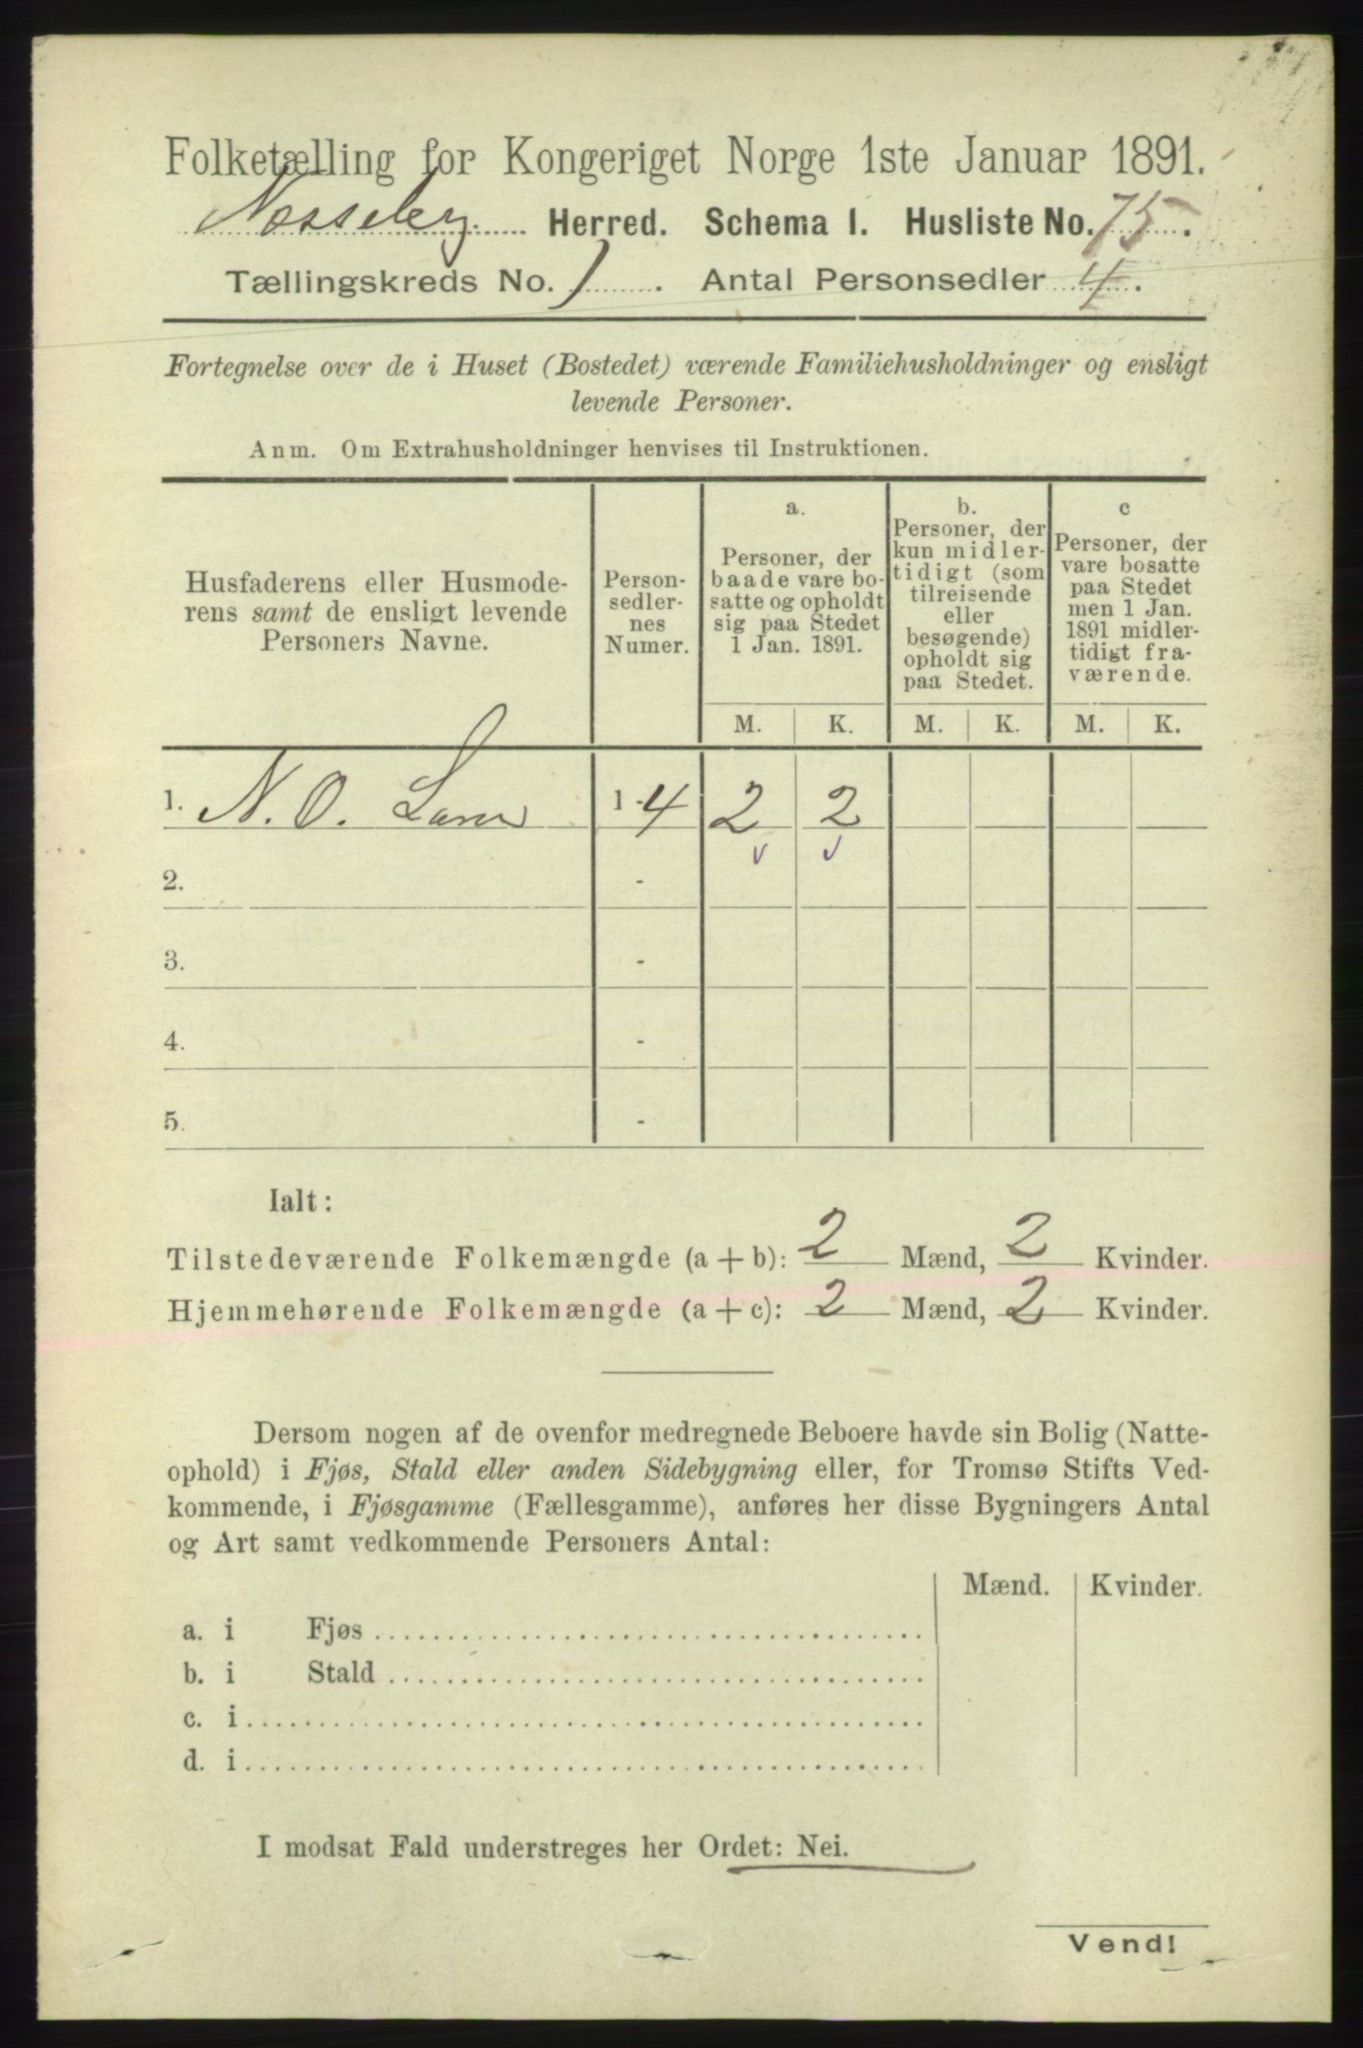 Folketælling for Kongeriget Norge 1ste Januar 1891.
Nesseby Herred. Schema I. Husliste No. 75.
Tællingskreds No. 1. Antal Personsedler 4.
Fortegnelse over de i Huset (Bostedet) værende Familiehusholdninger og ensligt
levende Personer.
Anm. Om Extrahusholdninger henvises til Instruktionen.
Husfaderens eller Husmode-
rens samt de ensligt levende
Personers Navne.
Person-
sedler-
nes
Numer.
a.
Personer, der
baade vare bo-
satte og opholdt
sig paa Stedet
1 Jan. 1891.
b.
Personer, der
kun midler-
tidigt (som
tilreisende
eller
besøgende)
opholdt sig
paa Stedet.
c
Personer, der
vare bosatte
paa Stedet
men 1 Jan.
1891 midler-
tidigt fra-
værende.
M. K. M. K. M. K.
1. N. O. 1-4 2 2
2. -
3. -
4. -
5. -
Ialt:
Tilstedeværende Folkemængde (a + b): 2 Mænd, 2 Kvinder.
Hjemmehørende Folkemængde (a + c): 2 Mænd, 2 Kvinder.
Dersom nogen af de ovenfor medregnede Beboere havde sin Bolig (Natte-
ophold) i Fjøs, Stald eller anden Sidebygning eller, for Tromsø Stifts Ved-
kommende, i Fjøsgamme (Fællesgamme), anføres her disse Bygningers Antal
og Art samt vedkommende Personers Antal:
Mænd. Kvinder.
a. i Fjøs
b. i Stald
c. i
d. i
I modsat Fald understreges her Ordet: Nei.
Vend!